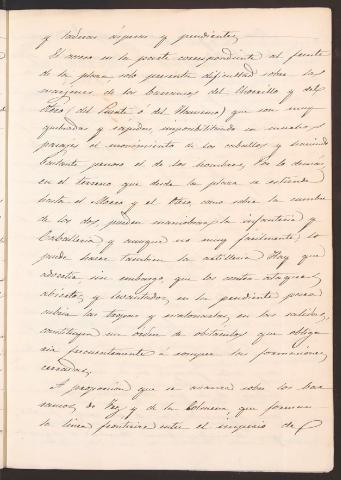 y laderas ásperas y pendientes.
El acceso en la parte correspondiente al frente
de la plaza, solo presenta dificultad sobre las
margenes de los barrancos del Chorrillo y del
(del Puente ó del Hacimo) que son muy
quebradas y rapidas, imposibilitando en muchos
parajes el movimiento de los caballos y haciendo
bastante penoso el de los hombres. Por lo demás
en el terreno que desde la plaza se estiende
hasta el Morro y el como sobre la cumbre
de los dos, pueden maniobrar la infanteria y
Caballeria y aunque no muy facilmente lo
puede hacer tambien la artilleria. Hay que
advertir sin embargo, que los ataques,
abiertos y levantados, en la pendiente para
cubrir las tropas y en las salidas,
constituyen un orden de obstaculos que obliga
ria frecuentemente á romper las formaciones
cerradas.
A proporcion que se avanza sobre los bar
rancos, de Fez y de la Colmena, que forman
la linea fronteriza entre el imperio de